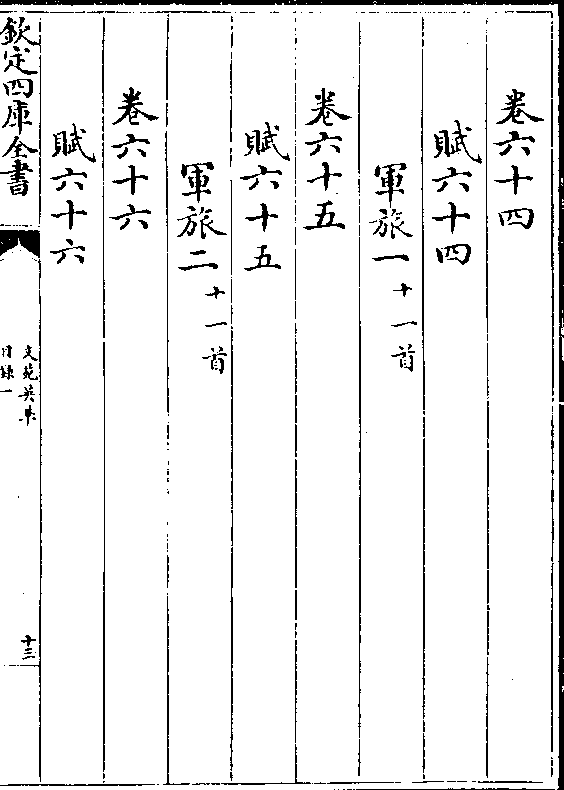 卷六十四
賦六十四
軍旅一十一首
卷六十五
賦六十五
軍旅二十一首
卷六十六
賦六十六
欽定四庫全書
文苑英華
目錄一
十三